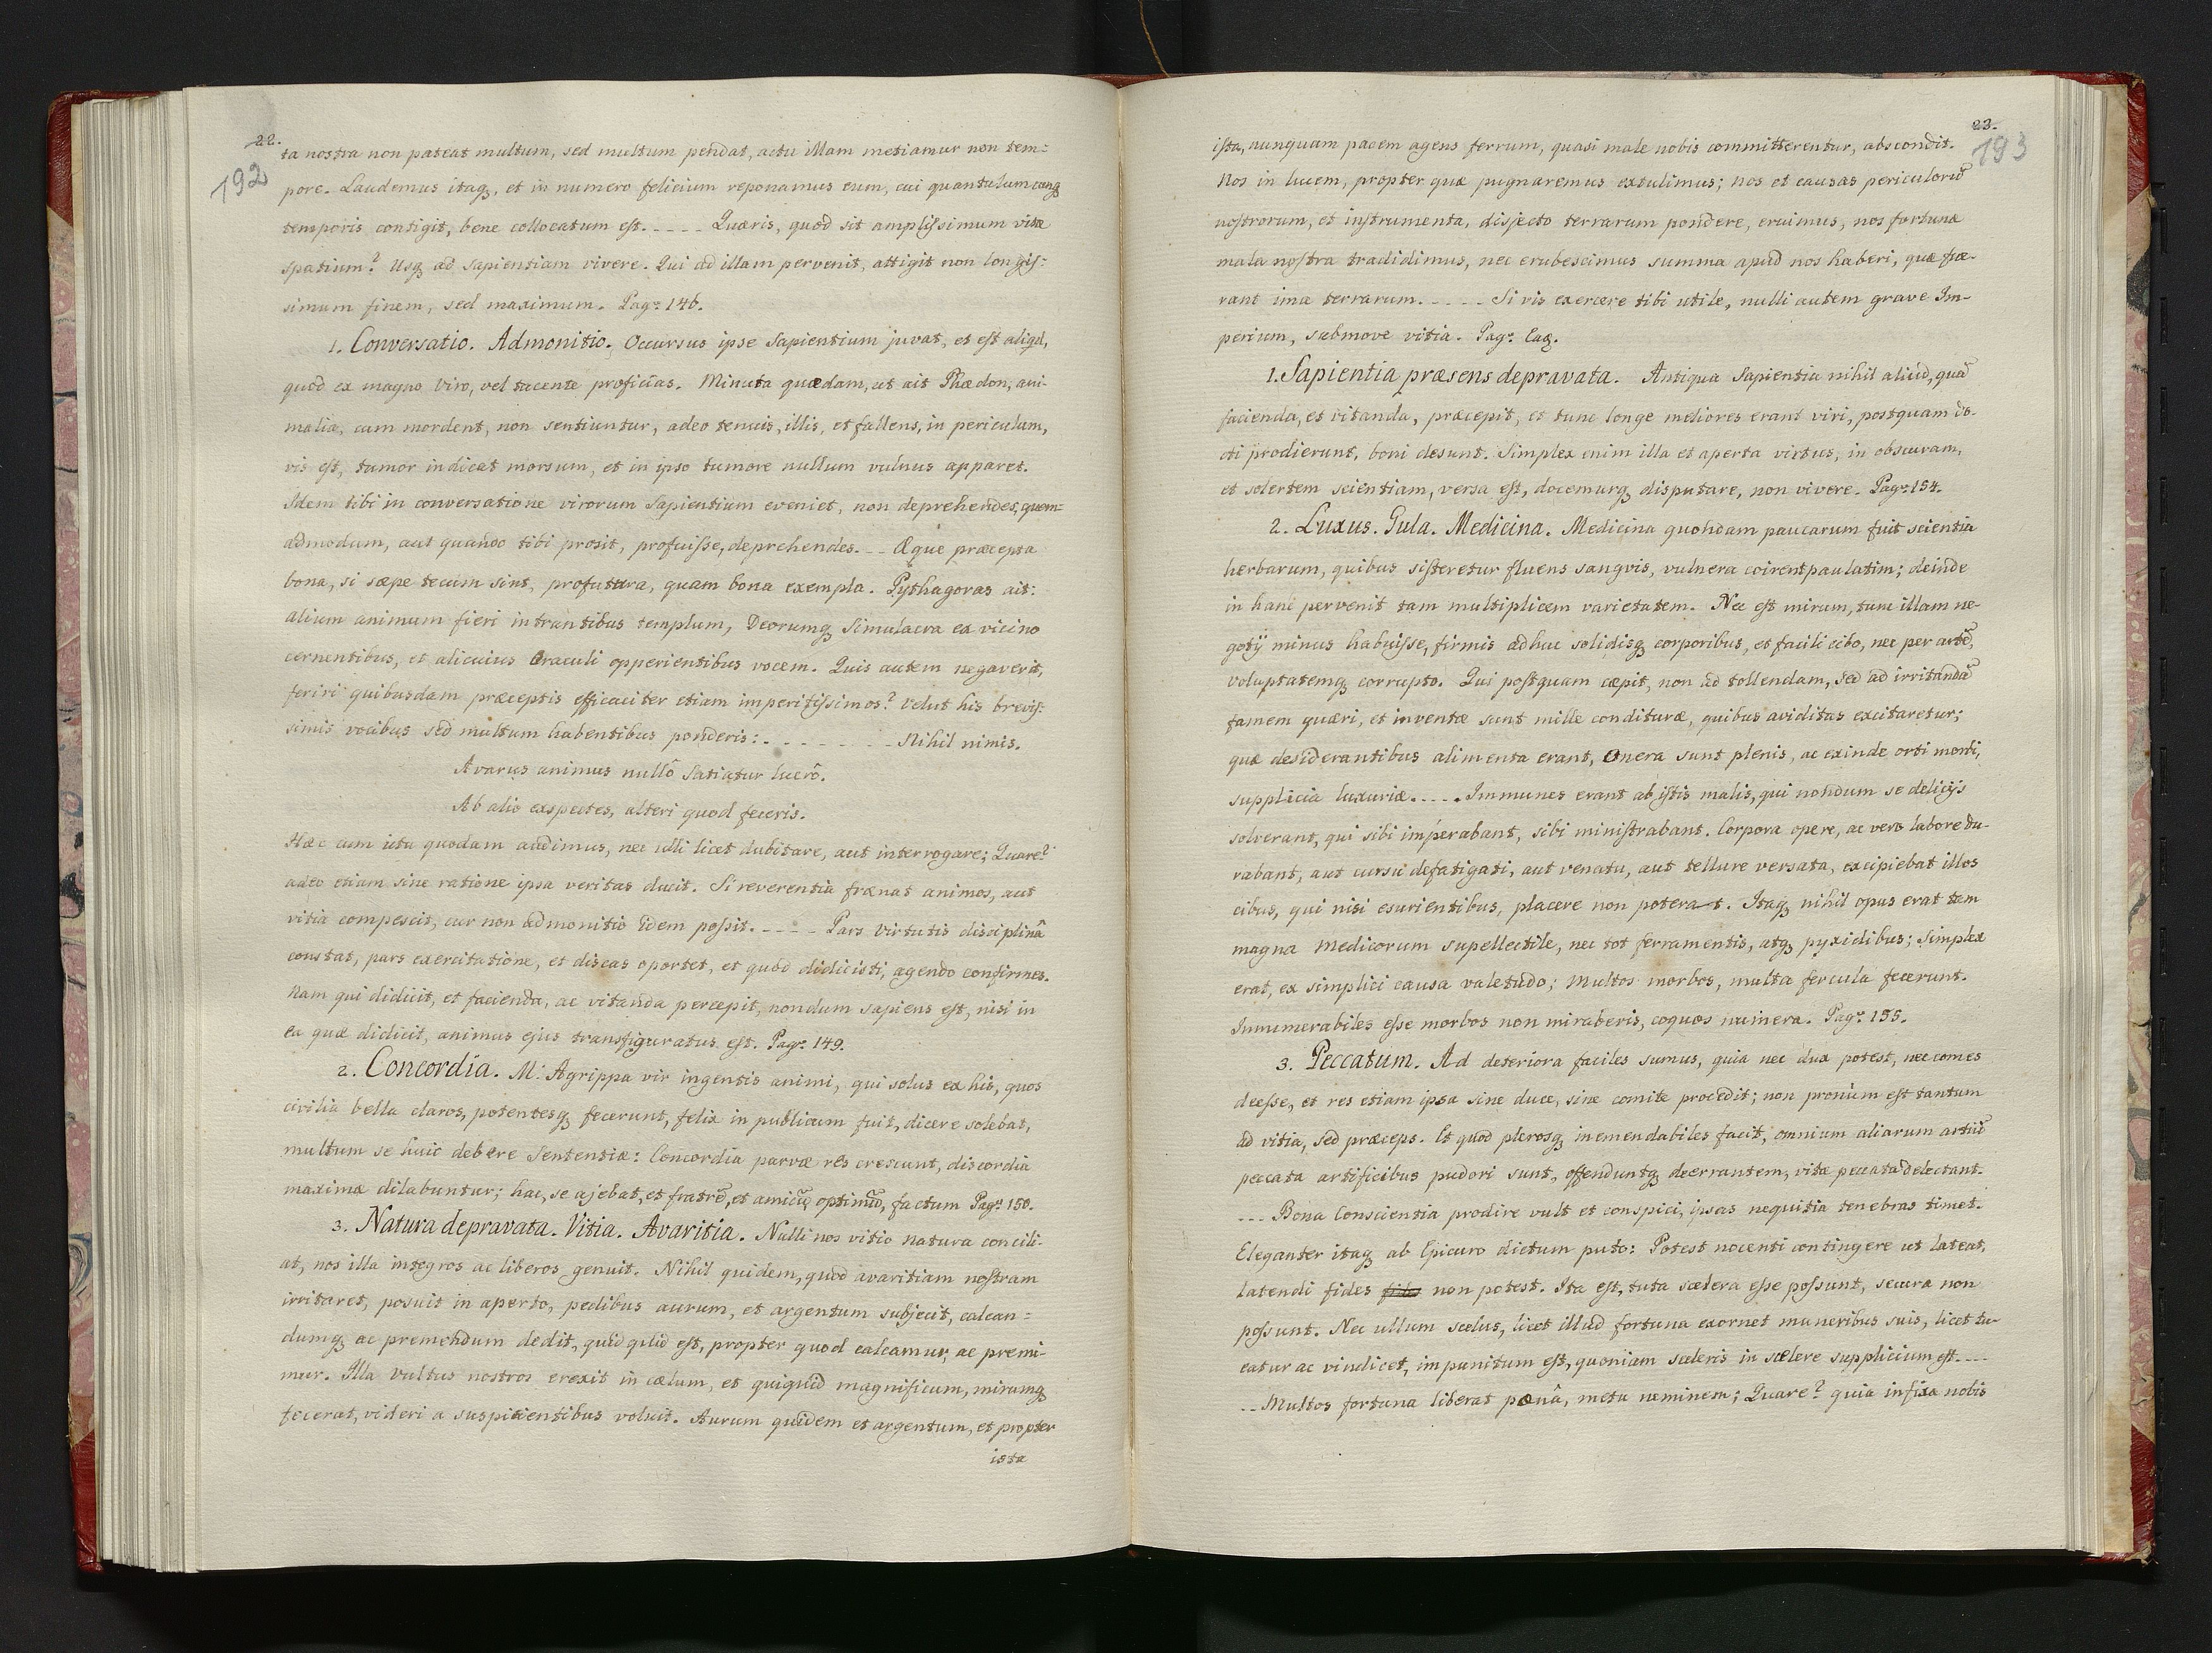 22.
192
ta nostra non pateat multum, sed multum pendat, actu illam metiamur non tem=
pore. Laudemus itaq, et in numero felicium reponamus eum, cui quantulumcunq
temporis contigit, bene collocatum est. - - - - Quæris, quod sit amplissimum vitæ
spatium? Usq ad sapientiam vivere. Qui ad illam pervenit, attigit non longis:
simum finem, sed maximum. Pag: 146.
1. Conversatio. Admonitio. Occursus ipse Sapientium juvat, et est aliqd,
quod ex magno Viro, vel tacente proficias. Minuta quædam, ut ait Phædon, ani-
malia, cum mordent, non sentiuntur, adeo tenuis, illis, et fallens, in periculum,
vis est, tumor indicat morsum, et in ipso tumore nullum vulnus apparet.
Idem tibi in conversatione virorum Sapientium eveniet, non deprehendes, quem=
admodum, aut quando tibi prosit, profuisse, deprehendes. - - Æque præcepta
bona, si sæpe tecum sint, profutura, quam bona exempla. Pythagoras ait:
alium animum fieri intrantibus templum, Deorumq Simulacra ex vicino
cernentibus, et alicuius Oraculi opperientibus vocem. Quis autem negaverit,
feriri quibusdam præceptis efficaciter etiam imperitissimos? Velut his brevis:
simis vocibus sed multum habentibus ponderis: - - - - - - - Nihil nimis.
Avarus animus nullô Satiatur lucrô.
Ab alio exspectes, alteri quod feceris.
Hæc cum ictu quodam audimus, nec ulli licet dubitare, aut interrogare; Quare?
adeo etiam sine ratione ipsa veritas ducit. Si reverentia frænat animos, aut
vitia compescit, cur non admonitio idem possit. - - - - Pars Virtutis disciplinâ
constat, pars exercitatione, et discas oportet, et quod didicisti, agendo confirmes.
Nam qui didicit, et facienda, ac vitanda percepit, nondum sapiens est, nisi in
ea quæ didicit, animus ejus transfiguratus est. Pag: 149.
2. Concordia. M. Agrippa vir ingentis animi, qui solus ex his, quos
civilia bella claros, potentesq fecerunt, felix in publicum fuit, dicere solebat,
multum se huic debere Sententiæ: Concordia parvæ res crescunt, discordia
maximæ dilabuntur; hac, se ajebat, et fratrẽ, et amicũ optimũ, factum Pag: 150.
3. Natura depravata. Vitia. Avaritia. Nulli nos vitio natura concili-
at, nos illa integros ac liberos genuit. Nihil quidem, quod avaritiam nostram
irritaret, posuit in aperto, pedibus aurum, et argentum subjecit, calcan=
dumq ac premendum dedit, quidquid est, propter quod calcamur, ac premi-
mur. Illa Vultus nostros erexit in cælum, et quiquid magnificum, mirumq
fecerat, videri a suspicientibus voluit. Aurum quidem et argentum, et propter
ista
23.
193
ista, nunquam pacem agens ferrum, quasi male nobis committerentur, abscondit.
Nos in lucem, propter quæ pugnaremus extulimus; nos et causas periculorũ
nostrorum, et instrumenta, disjecto terrarum pondere, eruimus, nos fortunæ
mala nostra tradidimus, nec erubescimus summa apud nos haberi, quæ fue-
rant ima terrarum. - - - - - Si vis exercere tibi utile, nulli autem grave Im-
perium, submove vitia. Pag: Eaq.
1. Sapientia præsens depravata. Antiqua Sapientia nihil aliud, quã
facienda, et vitanda, præcepit, et tunc longe meliores erant viri, postquam do-
cti prodierunt, boni desunt. Simplex enim illa et aperta virtus, in obscuram,
et solertem scientiam, versa est, docemurq disputare, non vivere. Pag: 154.
2. Luxus. Gula. Medicina. Medicina quondam paucarum fuit scientia
herbarum, quibus sisteretur fluens sangvis, vulnera coirent paulatim; deinde
in hanc pervenit tam multiplicem varietatem. Nec est mirum, tunc illam ne-
gotij minus habuisse, firmis adhuc solidisq corporibus, et facili cibo, nec per artẽ,
voluptatemq corrupto. Qui postquam cæpit, non ad tollendam, sed ad irritandã
famem quæri, et inventæ sunt mille condituræ, quibus aviditas excitaretur;
quæ desiderantibus alimenta erant, Onera sunt plenis, ac exinde orti morbi,
supplicia luxuriæ. - - - - Immunes erant ab istis malis, qui nondum se delicijs
solverant, qui sibi imperabant, sibi ministrabant. Corpora opere, ac vero labore du-
rabant, aut cursu defatigati, aut venatu, aut tellure versata, excipiebat illos
cibus, qui nisi esurientibus, placere non poterat. Itaq nihil opus erat tam
magna Medicorum supellectile, nec tot ferramentis, atq pyxidibus; Simplex
erat, ex simplici causa valetudo; Multos morbos, multa fercula fecerunt.
Innumerabiles esse morbos non miraberis, coquos numera. Pag: 155.
3. Peccatum. Ad deteriora faciles sumus, quia nec dux potest, nec comes
deesse, et res etiam ipsa sine duce, sine comite procedit; non pronum est tantum
ad vitia, sed præceps. Et quod plerosq inemendabiles facit, omnium aliarum artiũ
peccata artificibus pudori sunt, offenduntq deerrantem, vitæ peccata delectant.
- - - Bona Conscientia prodire vult et conspici, ipsas nequitia tenebras timet.
Eleganter itaq ab Epicuro dictum puto: Potest nocenti contingere ut lateat,
latendi fides fides non potest. Ita est, tuta scelera esse possunt, secura non
possunt. Nec ullum scelus, licet illud fortuna exornet muneribus suis, licet tu-
eatur ac vindicet, impunitum est, quoniam sceleris in scelere supplicium est. - - -
- - Multos fortuna liberat pænâ, metu neminem; Quare? quia infixa nobis